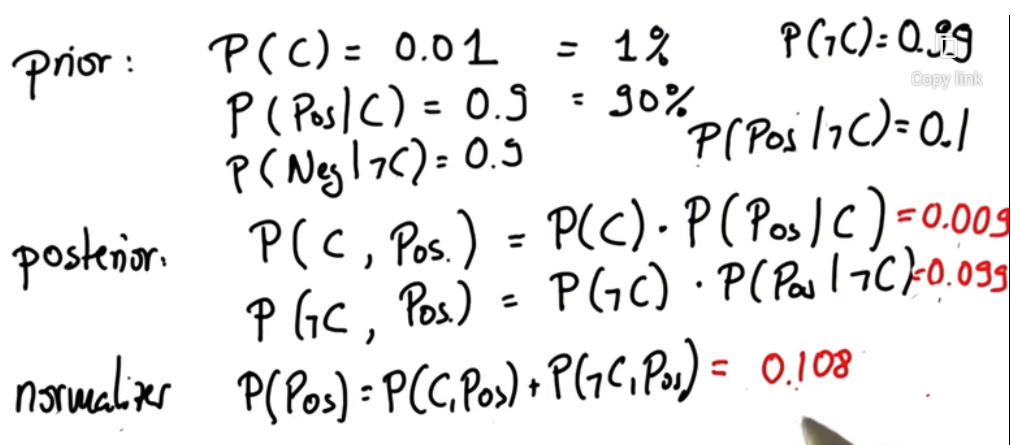 prior: P(C) = 0.01 = 1% P(¬C) = 0.99
Copy link
P(Pos|C) = 0.9 = 90%
P(Pos|¬C) = 0.1
P(Neg|¬C) = 0.9
posterior: P(C, Pos.) = P(C) · P(Pos|C) = 0.009
P(¬C, Pos.) = P(¬C) · P(Pos|¬C) = 0.099
normalizer P(Pos) = P(C, Pos) + P(¬C, Pos) = 0.108